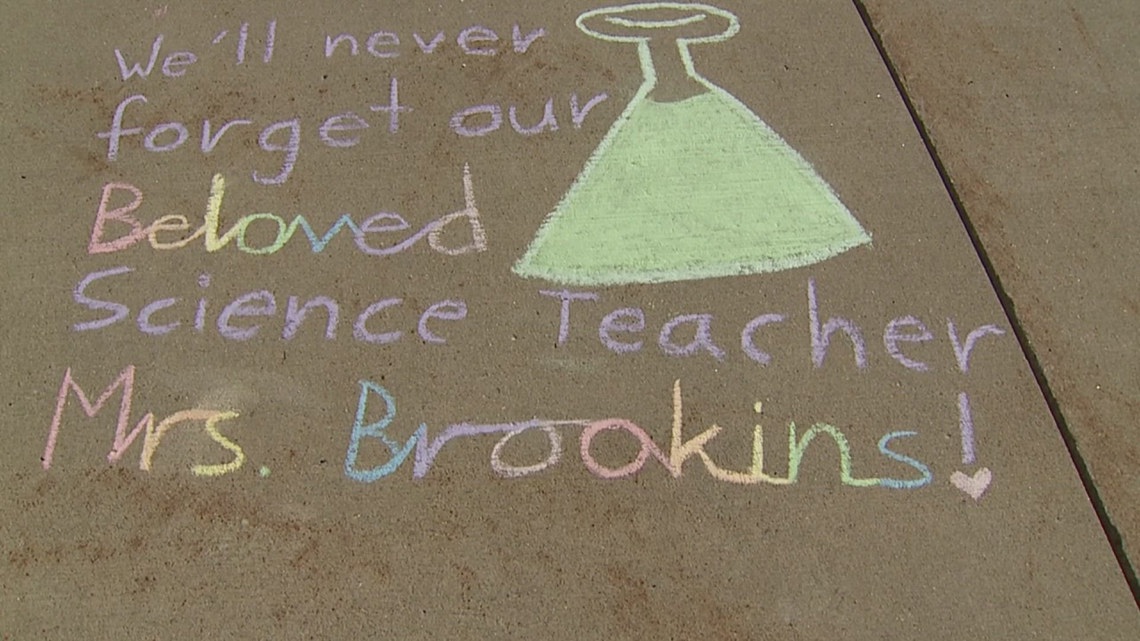 We'll never
forget our
Beloved
Science Teacher
Mrs. Brookins!